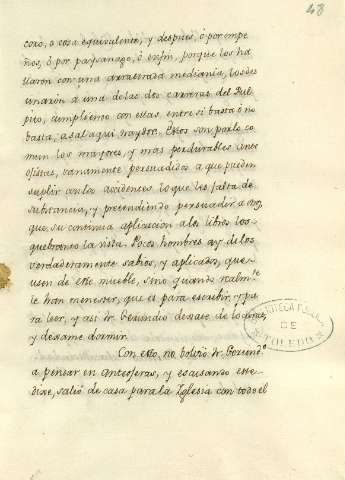 48
coro, ó cosa equivalente, y despues, ó por empe
ños, ó por paysanago, ó en fin, porque los ha
llaron con una arrastrada mediania, los des
tinaron a una de las dos carreras del Pul
pito, cumpliendo con ellas entre si basta ó no
basta, a sal aqui traydor. Estos son por lo co
mun los mayores, y mas perdurables ante
ofistas, vanamente persuadidos a que pueden
suplir con los accidentes lo que les falta de
substancia, y pretendiendo persuadir a
que, su continua aplicacion a los libros los
quebranto la vista. Pocos hombres ay de los
verdaderamente sabios, y aplicados, que
usen de este mueble, sino quando realmte
le han menester, que es para escribir, y pa
ra leer, y asi fr. Gerundio dexate de
y dexame dormir.
Con esto, no bolvió fr. Gerundo
a pensar en anteojeras, y
dixe, salió de casa para la Iglesia con todo el
BIBLIOTECA PUBLICA
DE
TOLEDO